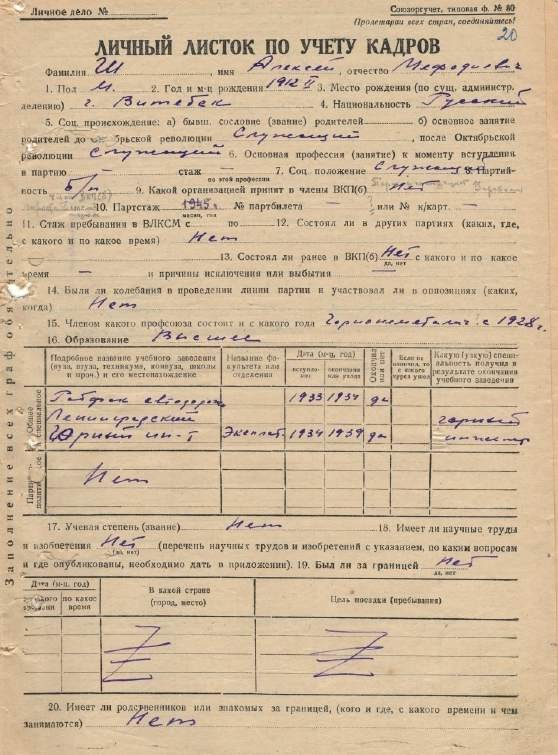 Личное дело №
Союзоргучет, типовая ф. № 80
Пролетарии всех стран, соединяйтесь!
20
ЛИЧНЫЙ ЛИСТОК ПО УЧЕТУ КАДРОВ
Фамилия Ш имя Алексей, отчество Мефодиевич
1. Пол М. 2. Год и м-ц рождения 1912 II 3. Место рождения (по сущ. администр.
делению) г. Витебск 4. Национальность Русский
5. Соц. происхождение: а) бывш. сословие (звание) родителей б) основное занятие
родителей до бьской революции Служащий, после Октябрьской
революции Служащий 6. Основная профессия (занятие) к моменту вступления
в партию — стаж — 7. Соц. положение Служащ 8. Партий-
по этой профессии
ность б/п 9. Какой организацией принят в члены ВКП(б) Нет
10. Партстаж 1945 г. № партбилета — или № к/карт. —
месяц, год
11. Стаж пребывания в ВЛКСМ с по 12. Состоял ли в других партиях (каких, где,
с какого и по какое время) Нет
13. Состоял ли ранее в ВКП(б) Нет с какого и по какое
да, нет
время — и причины исключения или выбытия
14. Были ли колебания в проведении линии партии и участвовал ли в оппозициях (каких,
когда) Нет
15. Членом какого профсоюза состоит и с какого года с 1928 г.
16. Образование Высшее
Подробное название учебного заведения (вуза, втуза, техникума, комвуза, школы и проч.) и его местонахождение
Название факультета или отделения
Дата (м-ц, год)
вступления
окончания или ухода
Окончил или нет
Если не окончил, то с какого курса ушел
Какую (узкую) специальность получил в результате окончания учебного заведения
Общее и специальное
Рабфак 1933 1934 да
Ленинградский горный
Горный ин-т Эксплат. 1934 1939 да инженер
Партийно-политическое
Нет
17. Ученая степень (звание) Нет 18. Имеет ли научные труды
и изобретения Нет (перечень научных трудов и изобретений с указанием, по каким вопросам
да, нет
и где опубликованы, необходимо дать в приложении). 19. Был ли за границей Нет
да, нет
Дата (м-ц, год)
с какого времени
по какое время
В какой стране (город, место)
Цель поездки (пребывания)
20. Имеет ли родственников или знакомых за границей, (кого и где, с какого времени и чем
занимаются) Нет
Заполнение всех граф обязательно